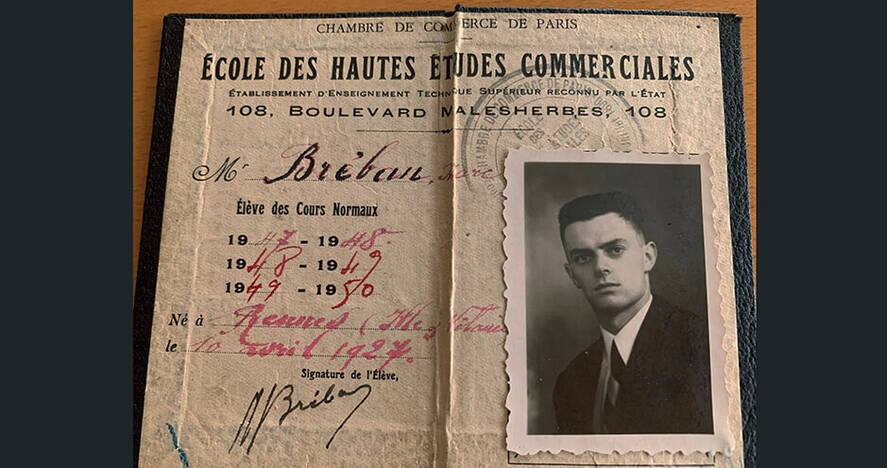 CHAMBRE DE COMMERCE DE PARIS
ÉCOLE DES HAUTES ÉTUDES COMMERCIALES
ÉTABLISSEMENT D'ENSEIGNEMENT TECHNIQUE SUPÉRIEUR RECONNU PAR L'ÉTAT
108, BOULEVARD MALESHERBES, 108
Mr Bréban,
Élève des Cours Normaux
1947 - 1948.
1948 - 1949
1949 - 1950
Né à Rennes (Ille & Vilaine
le 10 avril 1927.
Signature de l'Élève,
MBréban
CHAMBRE DE COMMERCE DE PARIS